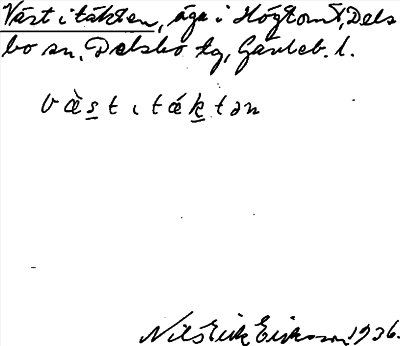 Väst i täkten, äga i Högtomt, Dels
bo sn, Delsbo tg, Gävleb. l.
v ὰ s t ɩ t á k t ə n
Nils Erik Eriksson 1936.